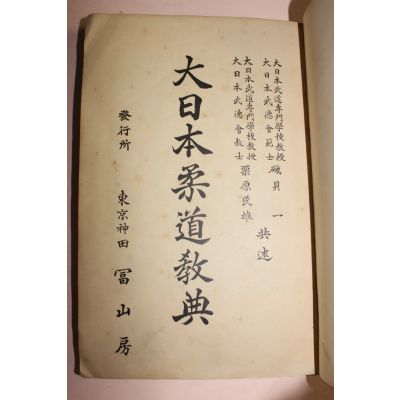 大日本武道専門學校教授
大日本武德會範士 磯貝 一
大日本武道専門學校教授
大日本武德會教士 栗原民雄
共述
大日本柔道教典
發行所 東京神田 冨山房